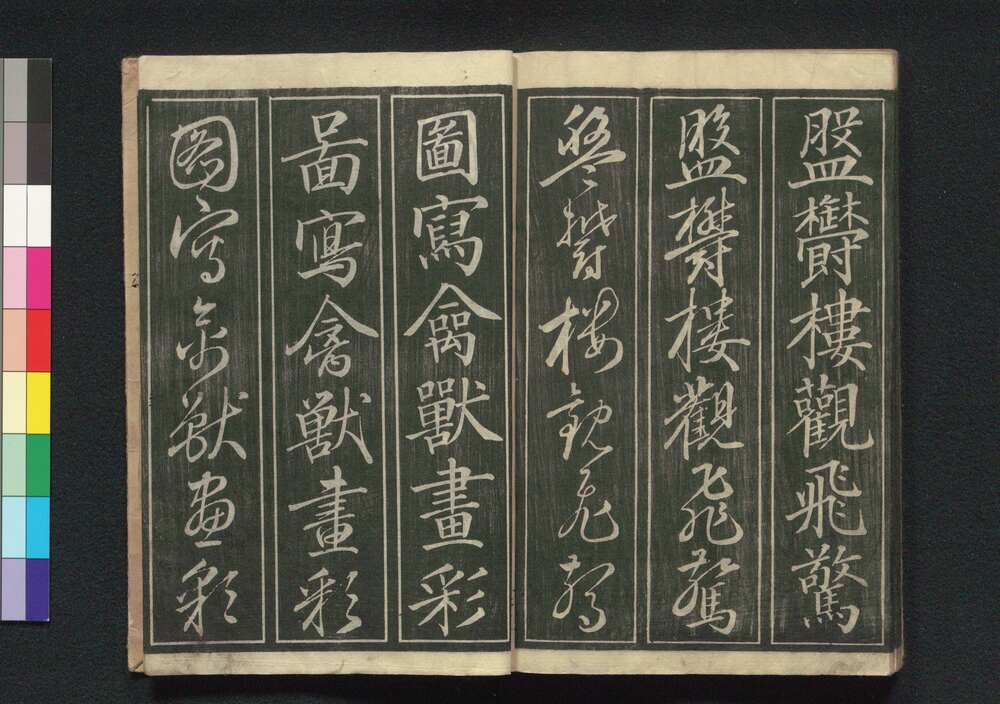 盤欝樓觀飛驚
盤欝樓觀飛驚
盤欝樓觀飛驚
圖寫禽獸畫彩
啚寫禽獣畫彩
圖寫禽獣畫彩